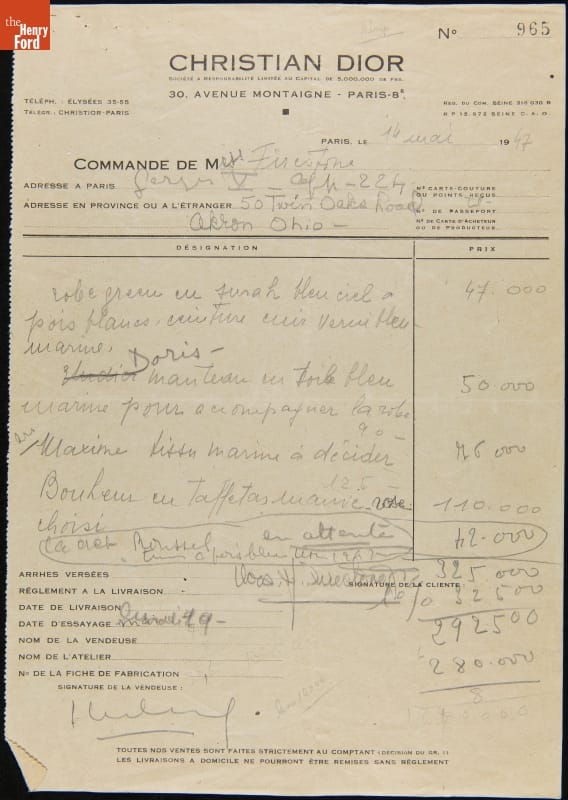 the Henry Ford
No 965
CHRISTIAN DIOR
SOCIÉTÉ A RESPONSABILITÉ LIMITÉE AU CAPITAL DE 5,000,000 DE FRS.
30, AVENUE MONTAIGNE - PARIS-8e
TÉLÉPH. : ÉLYSÉES 35-55
TÉLÉGR. : CHRISTIOR-PARIS
REG. DU COM. SEINE 316 030 B
R P 15.972 SEINE C. A. O.
PARIS, LE 14 mai 1947
COMMANDE DE Mrs Firestone
ADRESSE A PARIS Georges V - app - 224
ADRESSE EN PROVINCE OU A L'ÉTRANGER 50 Twin Oaks Road
Akron Ohio -
N° CARTE-COUTURE OU POINTS REÇUS
N° DE PASSEPORT
N° DE CARTE D'ACHETEUR OU DE PRODUCTEUR
DÉSIGNATION PRIX
robe green en surah bleu ciel à 47.000
pois blancs, ceinture cuir verni bleu
marine.
Doris -
manteau en toile bleu 50.000
marine pour accompagner la robe
90 -
Maxime tissu marine à décider 76 000
125 -
Bonheur en Taffetas 110.000
choisi
en attente 42.000
325 000
ARRHES VERSÉES
SIGNATURE DE LA CLIENTE :
RÉGLEMENT A LA LIVRAISON
% 32 500
DATE DE LIVRAISON
292500
DATE D'ESSAYAGE 19 -
NOM DE LA VENDEUSE
NOM DE L'ATELIER
280.000
N° DE LA FICHE DE FABRICATION
SIGNATURE DE LA VENDEUSE :
8
TOUTES NOS VENTES SONT FAITES STRICTEMENT AU COMPTANT (DÉCISION DU GR. 1)
LES LIVRAISONS A DOMICILE NE POURRONT ÊTRE REMISES SANS RÉGLEMENT